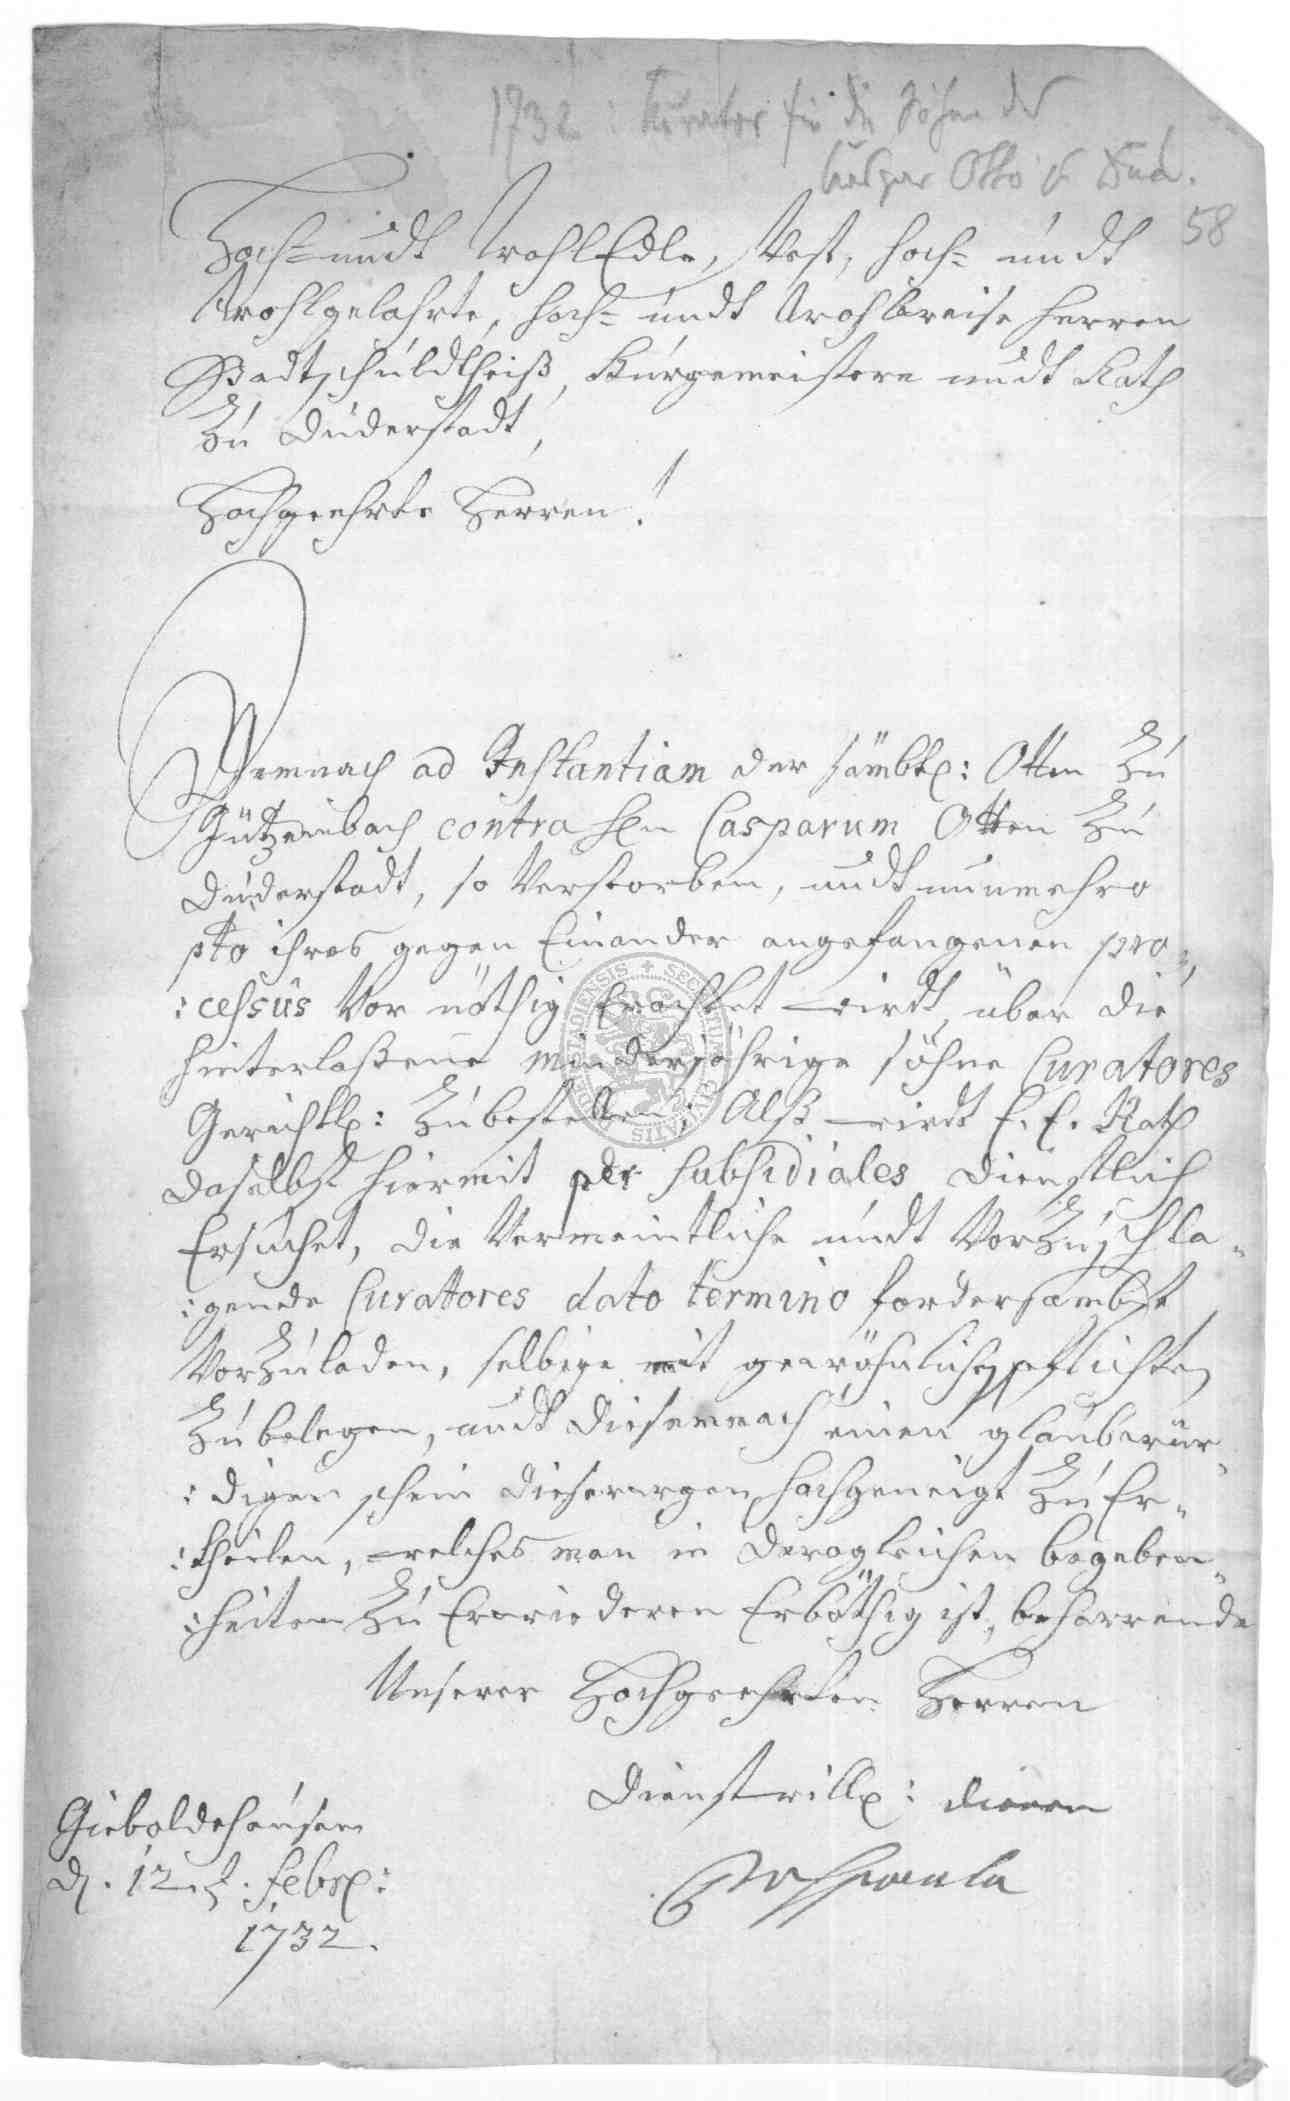 1732: Kurator für die Söhne des
Caspar Otto in Dud.
58
Hoch= undt WohlEdle, Vest, hoch= undt
Wohlgelahrte, hoch= undt Wohlweise Herren
Stadtschuldtheiß, Bürgemeistere undt Rath
Zu Duderstadt,
Hochgeehrte Herren!
Demnach ad Instantiam der sämbtl: Otten Zu
Gützenbach contra Hn Casparum Otten Zu
Duderstadt, so Verstorben, undt nunmehro
pto ihres gegen Einander angefangenen pro=
:cessus Vor nöthig Erachtet wirdt, über die
hinterlaßene minderjährige söhne Curatores
Gerichtl: Zu bestellen; Alß wirdt E. E. Rath
daselbst hiermit per subsidiales dienstlich
Ersuchet, die Vermeintliche undt VorZuschla=
:gende Curattores dato termino fordersambst
VorZuladen, selbige mit gewöhnlichen pflichten
Zu belegen, undt diesemnach einen glaubwür=
:digen schein dieserwegen hochgeneigt Zu Er=
:theilen, welches man in dergleichen begeben=
:heiten Zu Erwiederen Erböthig ist, beharrende
Unserer Hochgeehrten Herren
Dienstwill: diener
Gieboldehausen
d. 12t. febr:
1732.
SECRETUM CIVITATIS